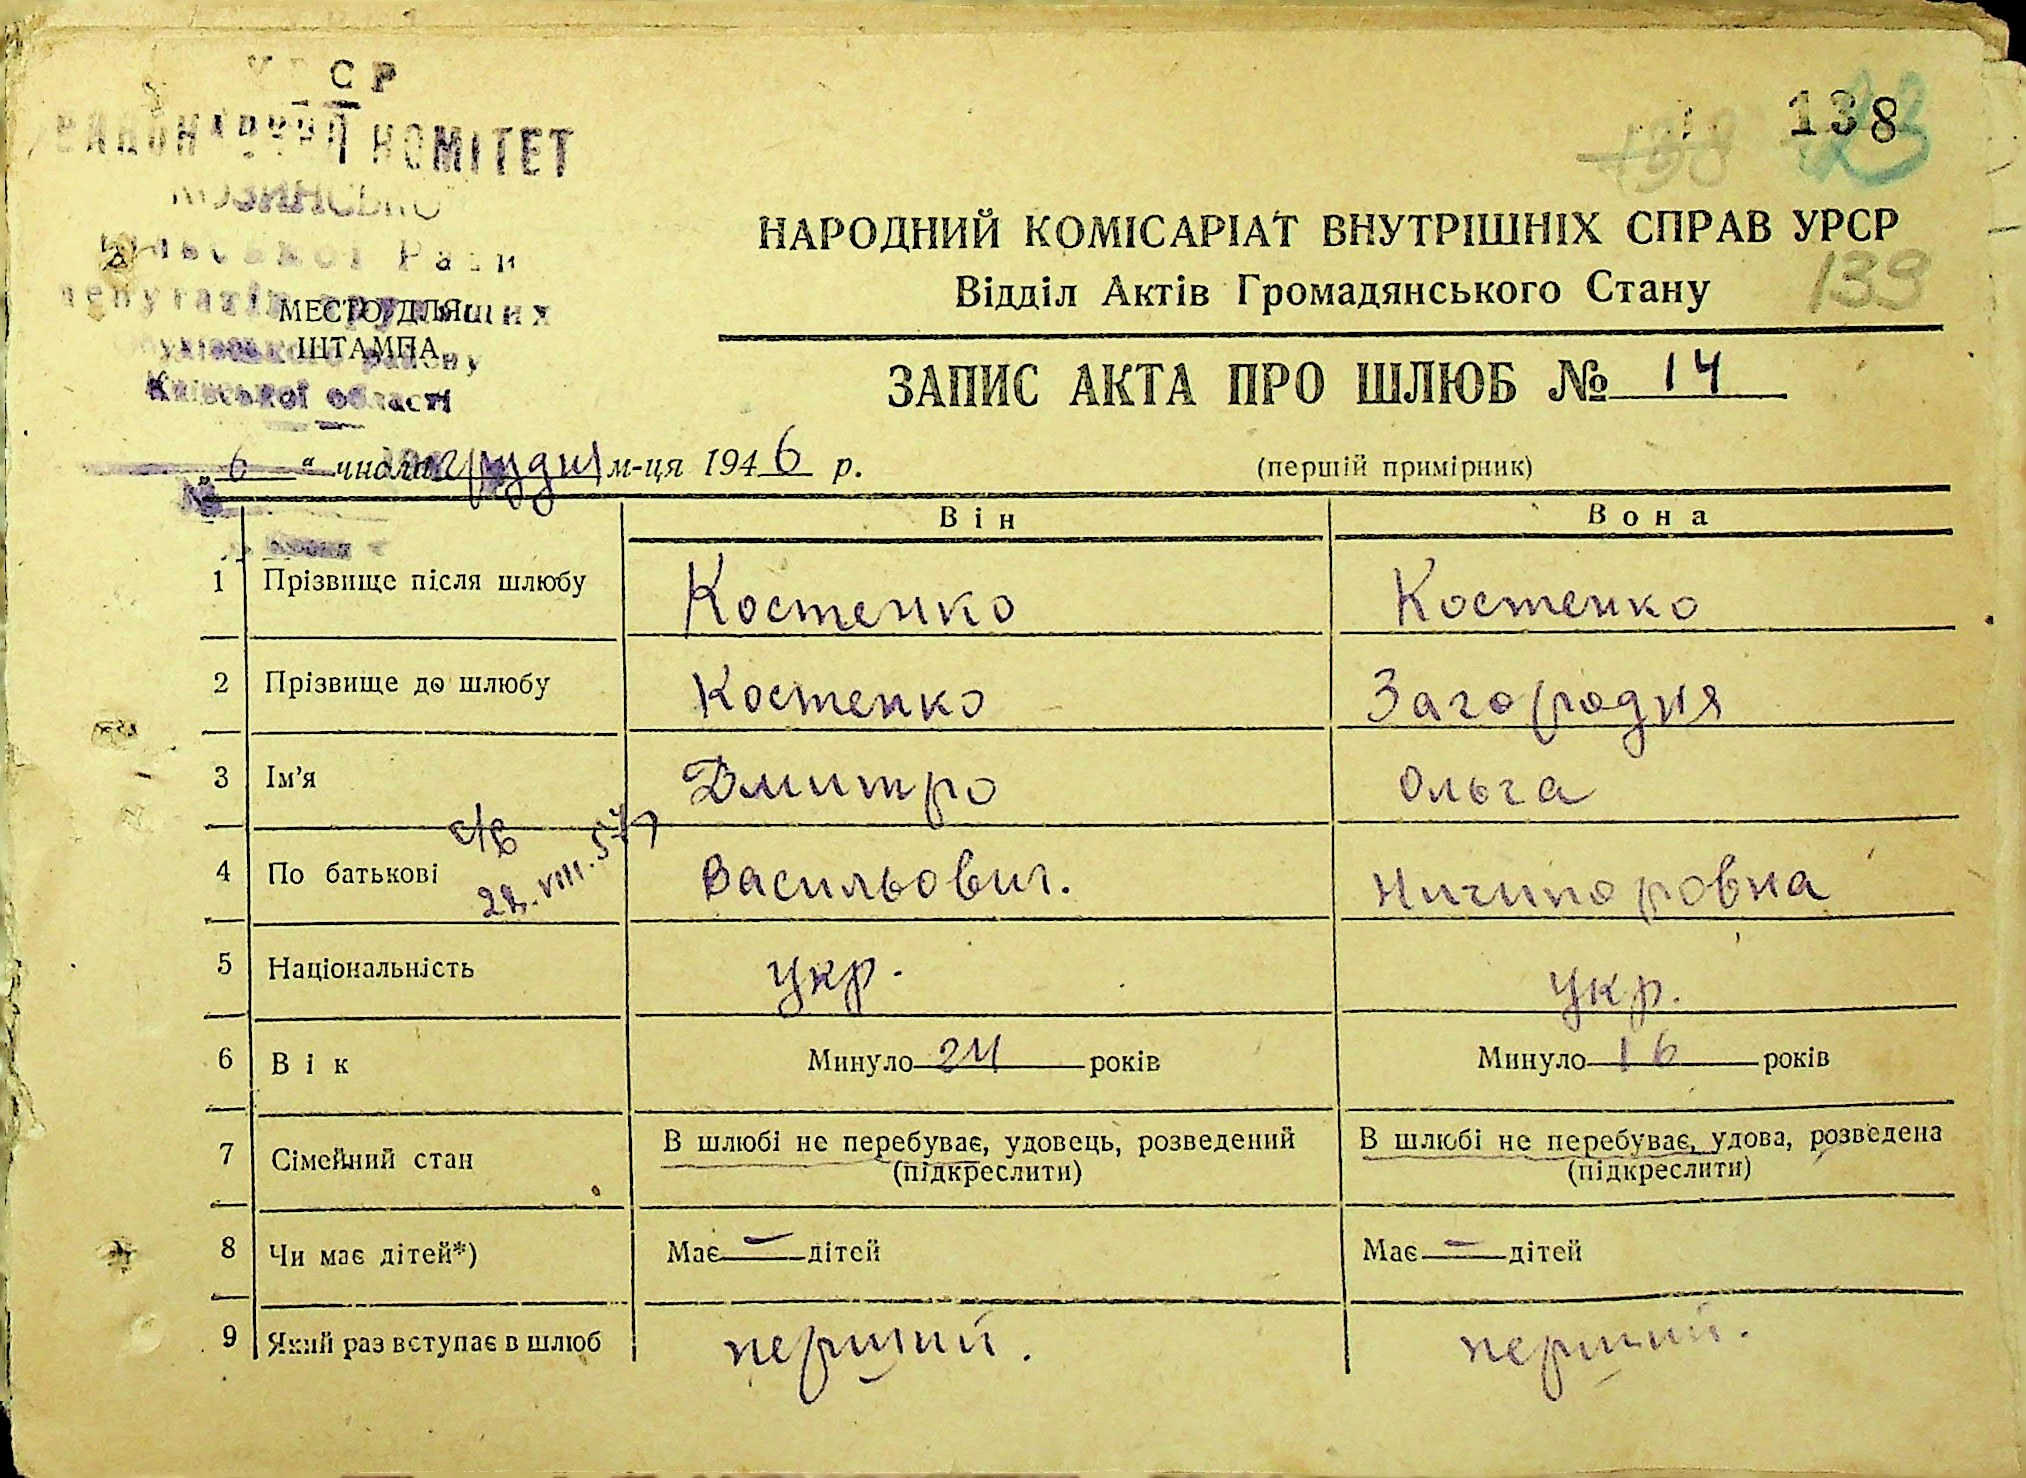 УРСР
КОМІТЕТ
Ради
МЕСТО ДЛЯ
ШТАМПА
Київської області
138
138
139
НАРОДНИЙ КОМІСАРІАТ ВНУТРІШНІХ СПРАВ УРСР
Відділ Актів Громадянського Стану
ЗАПИС АКТА ПРО ШЛЮБ № 14
6 " числа грудня м-ця 1946 р.
(першій примірник)
Він
Вона
1 Прізвище після шлюбу Костенко Костенко
2 Прізвище до шлюбу Костенко Загородня
3 Ім'я Дмитро Ольга
4 По батькові Васильович. Ничипоровна
5 Національність укр. укр.
6 Вік Минуло 24 років Минуло 16 років
7 Сімейний стан В шлюбі не перебуває, удовець, розведений В шлюбі не перебуває, удова, розведена
(підкреслити) (підкреслити)
8 Чи має дітей*) Має — дітей Має — дітей
9 Який раз вступає в шлюб перший. перший.